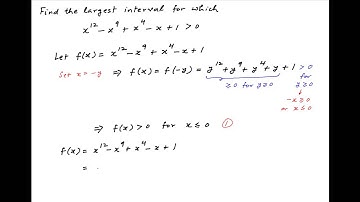 Find the largest interval for which
x¹² − x⁹ + x⁴ − x + 1 > 0
Let f(x) = x¹² − x⁹ + x⁴ − x + 1
Set x = −y ⇒ f(x) = f(−y) = y¹² + y⁹ + y⁴ + y + 1 > 0
≥ 0 for y ≥ 0
for
y ≥ 0
↓
−x ≥ 0
or x ≤ 0
⇒ f(x) > 0 for x ≤ 0 ①
f(x) = x¹² − x⁹ + x⁴ − x + 1
=